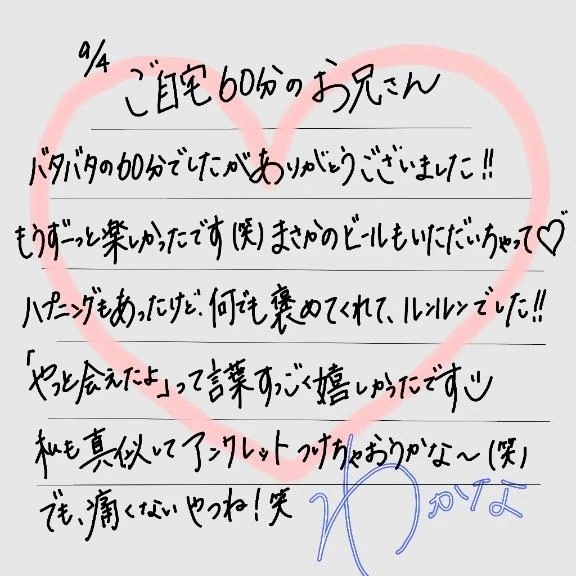 9/4
ご自宅60分のお兄さん
バタバタの60分でしたがありがとうございました!!
もうずーっと楽しかったです(笑)まさかのビールもいただいちゃって♡
ハプニングもあったけど、何でも褒めてくれて、ルンルンでした!!
「やっと会えたよ」って言葉すっごく嬉しかったです
私も真似してアンクレットつけちゃおうかな〜(笑)
でも、痛くないやつね!笑
わかな